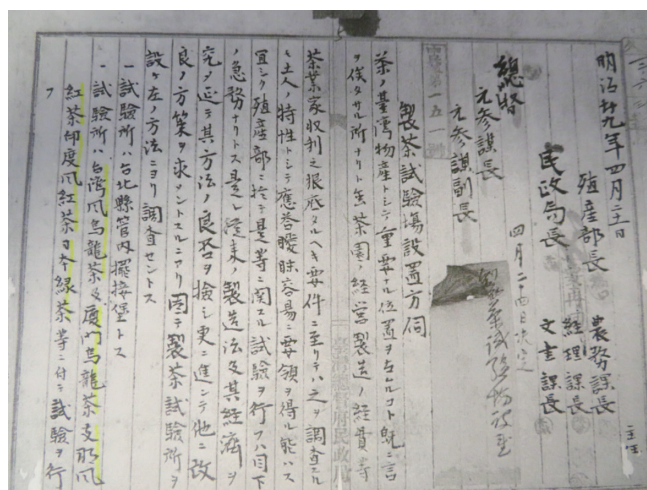 明治廿九年四月二十日
殖産部長
農務課長
経理課長
文書課長
主任
民政局長
四月二十四日決定
總督
元参謀長
元参謀副長
製茶試驗場設置
製茶試驗場設置方伺
茶ノ臺灣物産トシテ重要ナル位置ヲ占ムルコト既ニ言
ヲ俟タサル所ナリト雖茶園ノ経営製造ノ経費等
茶業家収利之根底タルヘキ要件ニ至リテハ之ヲ調査スル
モ土人ノ特性トシテ應答曖昧容易ニ要領ヲ得ル能ハス
宜シク殖産部ニ於テ是等ニ関スル試驗ヲ行フハ目下
ノ急務ナリトス是レ従来ノ製造法及其経濟ヲ
究メ延テ其方法ノ良否ヲ檢シ更ニ進ンテ他ニ改
良ノ方策ヲ求メントスルニアリ因テ製茶試驗所ヲ
設ケ左ノ方法ニヨリ調査セントス
一試驗所ハ台北縣管内擺接堡トス
一試驗所ハ台湾風烏龍茶及廈門烏龍茶支那風
紅茶印度風紅茶日本緑茶等ニ付テ試驗ヲ行
フ